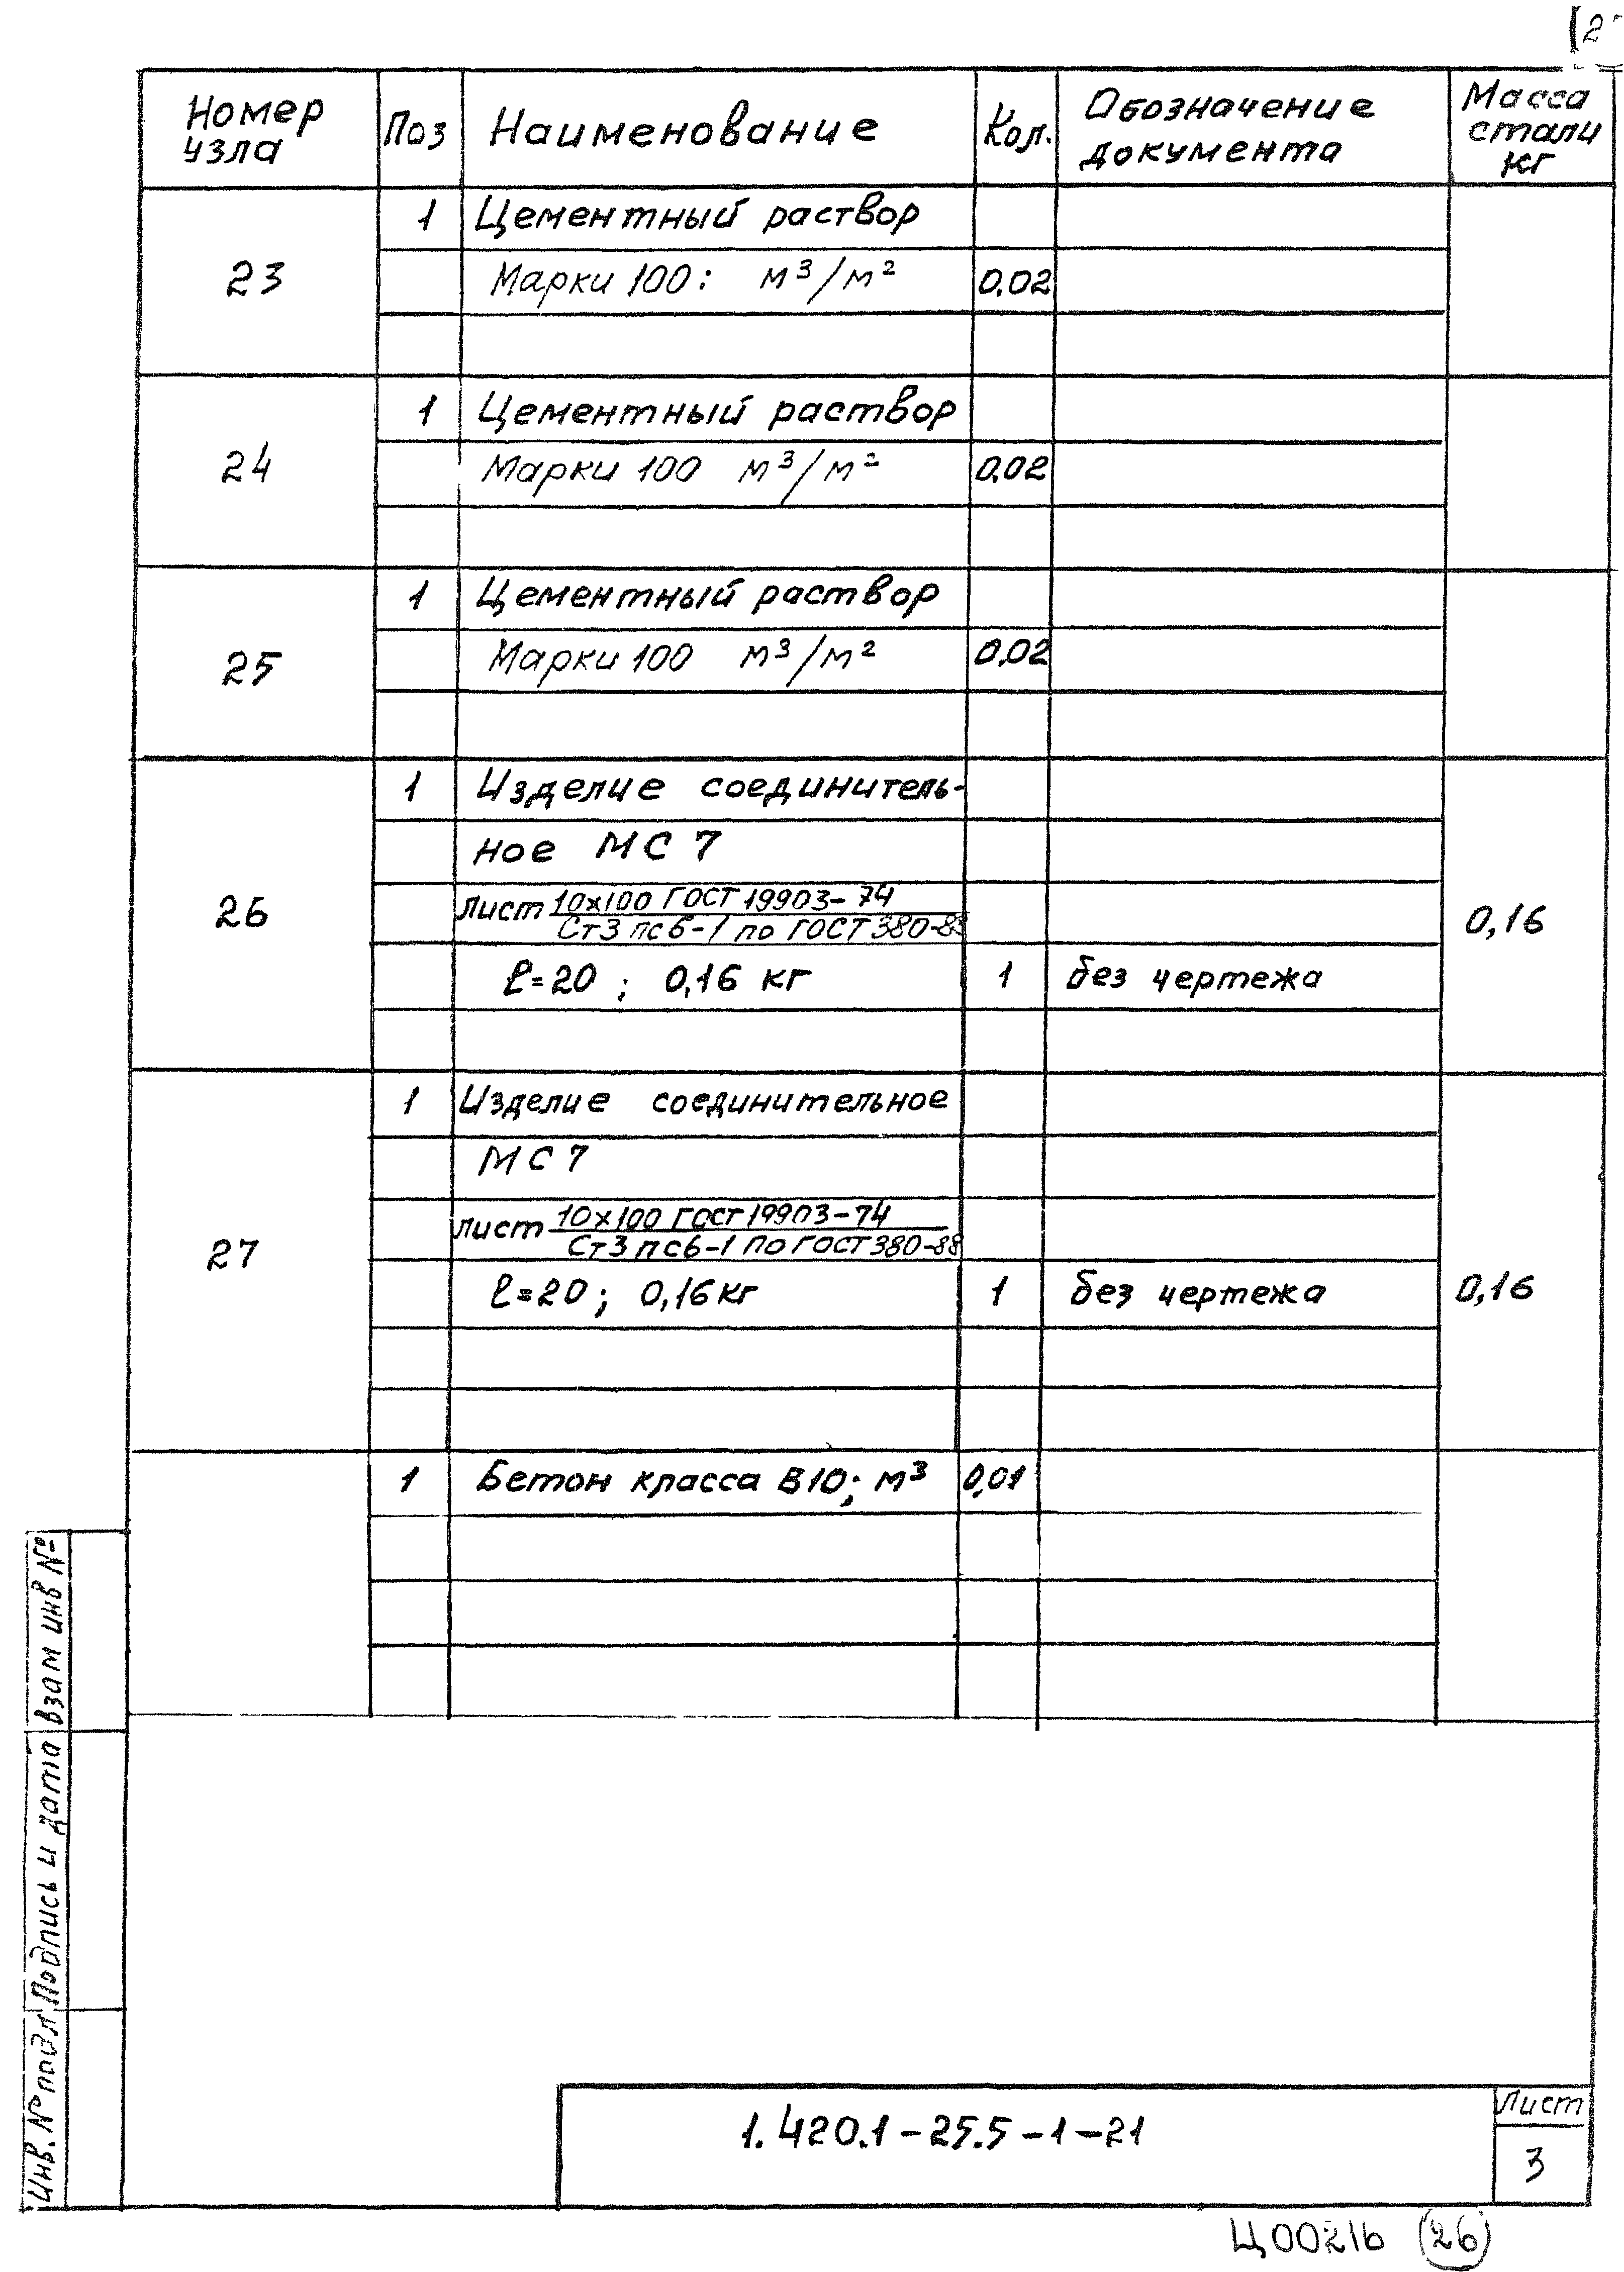 Номер узла | Поз | Наименование | Кол. | Обозначение документа | Масса стали кг
23 | 1 | Цементный раствор
Марки 100: м³/м² | 0.02
24 | 1 | Цементный раствор
Марки 100 м³/м² | 0.02
25 | 1 | Цементный раствор
Марки 100 м³/м² | 0.02
26 | 1 | Изделие соединитель-
ное МС 7
Лист 10х100 ГОСТ 19903-74
Ст3 пс6-1 по ГОСТ 380-88
ℓ=20; 0,16 кг | 1 | без чертежа | 0,16
27 | 1 | Изделие соединительное
МС 7
Лист 10х100 ГОСТ 19903-74
Ст3 пс6-1 по ГОСТ 380-88
ℓ=20; 0,16 кг | 1 | без чертежа | 0,16
1 | Бетон класса В10; м³ | 0,01
Взам инв №
Подпись и дата
Инв. № подл
1.420.1-25.5-1-21
Лист
3
26